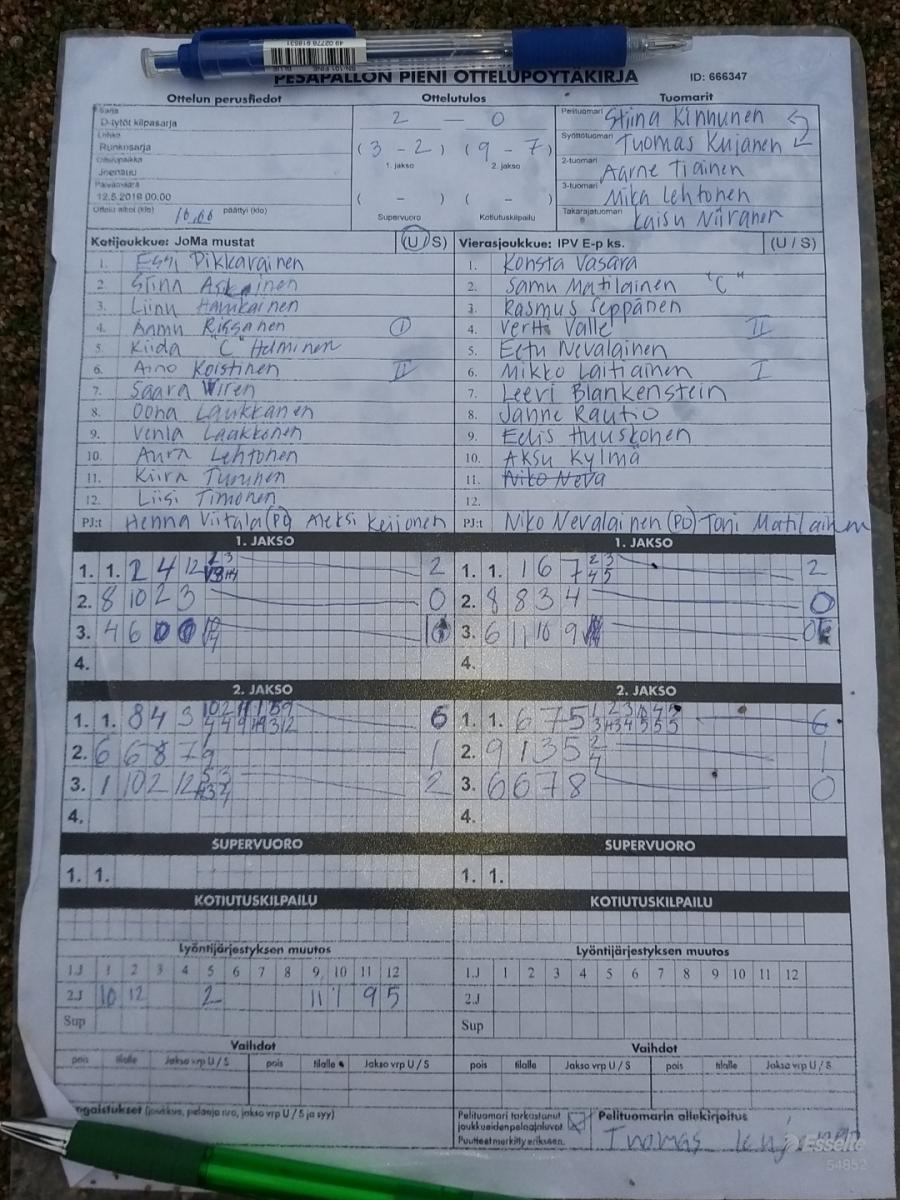 PESÄPALLON PIENI OTTELUPÖYTÄKIRJA ID: 666347
Ottelun perustiedot Ottelutulos Tuomarit
Sarja
D-tytöt kilpasarja
Lohko
Runkosarja
Ottelupaikka
Joensuu
Päivämäärä
12.5.2019 00.00
Ottelu alkoi (klo) päättyi (klo)
2 — 0
( 3 - 2 ) ( 9 - 7 )
1. jakso 2. jakso
( - ) ( - )
Supervuoro Kotiutuskilpailu
Pelituomari Stiina Kinnunen
Syöttötuomari Tuomas Kujanen
2-tuomari Aarne Tiainen
3-tuomari Mika Lehtonen
Takarajatuomari Kaisu Niiranen
Kotijoukkue: JoMa mustat (U / S) Vierasjoukkue: IPV E-p ks. (U / S)
1. Essi Pikkarainen 1. Konsta Vasara
2. Stina Asikainen 2. Samu Matilainen "C"
3. Liinu Hamikainen 3. Rasmus Seppänen
4. Anmu Rissanen I 4. Valle II
5. Kiida "C" Helminen 5. Eetu Nevalainen
6. Aino Koistinen II 6. Mikko Laitiainen I
7. Saara Wiren 7. Leevi Blankenstein
8. Oona Laukkanen 8. Janne Rautio
9. Venla Laakkonen 9. Eelis Huuskonen
10. Aura Lehtonen 10. Aksu Kylmä
11. Kiira Turunen 11. Niko Neva
12. Liisi Timonen 12.
PJ:t Henna Viitala (PJ) Aleksi Keijonen PJ:t Niko Nevalainen (PJ) Toni Matilainen
1. JAKSO 1. JAKSO
1. 1. 2 4 12 2 1. 1. 1 6 7 2 3 4 5 2
2. 8 10 2 3 0 2. 8 8 3 4 0
3. 4 6 3. 6 11 10 9
4. 4.
2. JAKSO 2. JAKSO
1. 1. 8 4 3 6 1. 1. 6 7 5 6
2. 6 6 8 7 1 2. 9 1 3 5 2 4 1
3. 1 10 2 12 2 3. 6 6 7 8 0
4. 4.
SUPERVUORO SUPERVUORO
1. 1. 1. 1.
KOTIUTUSKILPAILU KOTIUTUSKILPAILU
Lyöntijärjestyksen muutos Lyöntijärjestyksen muutos
1.J 1 2 3 4 5 6 7 8 9 10 11 12 1.J 1 2 3 4 5 6 7 8 9 10 11 12
2.J 10 12 2 11 1 9 5 2.J
Sup Sup
Vaihdot Vaihdot
pois tilalle Jakso vrp U / S pois tilalle Jakso vrp U / S pois tilalle Jakso vrp U / S pois tilalle Jakso vrp U / S
ngaistukset (joukkue, pelaaja nro, jakso vrp U / S ja syy)
Pelituomari tarkastanut
joukkueiden pelaajaluvat
Puutteet merkitty erikseen.
Pelituomarin allekirjoitus
Tuomas
Esselte
54852